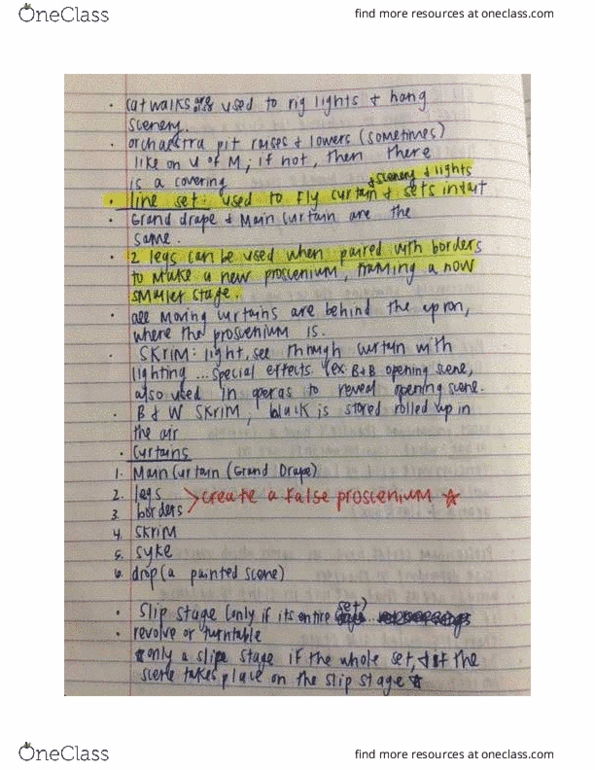 OneClass
find more resources at oneclass.com
• catwalks are used to rig lights & hang
scenery.
• orchaestra pit raises & lowers (sometimes)
like on U of M; if not, then there
is a covering
& scenery & lights
• line set: used to fly curtain & sets in/out
• Grand drape & Main Curtain are the
same.
• 2 legs can be used when paired with borders
to make a new proscenium, framing a now
smaller stage.
• all moving curtains are behind the apron,
where the proscenium is.
• SKRIM: light, see through curtain with
lighting ... special effects (ex. B&B opening scene,
also used in operas to reveal opening scene.
• B & W SKRIM; black is stored rolled up in
the air
• Curtains
1. Main Curtain (Grand Drape)
2. legs
> create a false proscenium ☆
3. borders
4. SKRIM
5. syke
6. drop (a painted scene)
set)
• Slip stage (only if its entire
• revolve or turntable
☆only a slip stage if the whole set, & if the
scene takes place on the slip stage ☆
OneClass
find more resources at oneclass.com